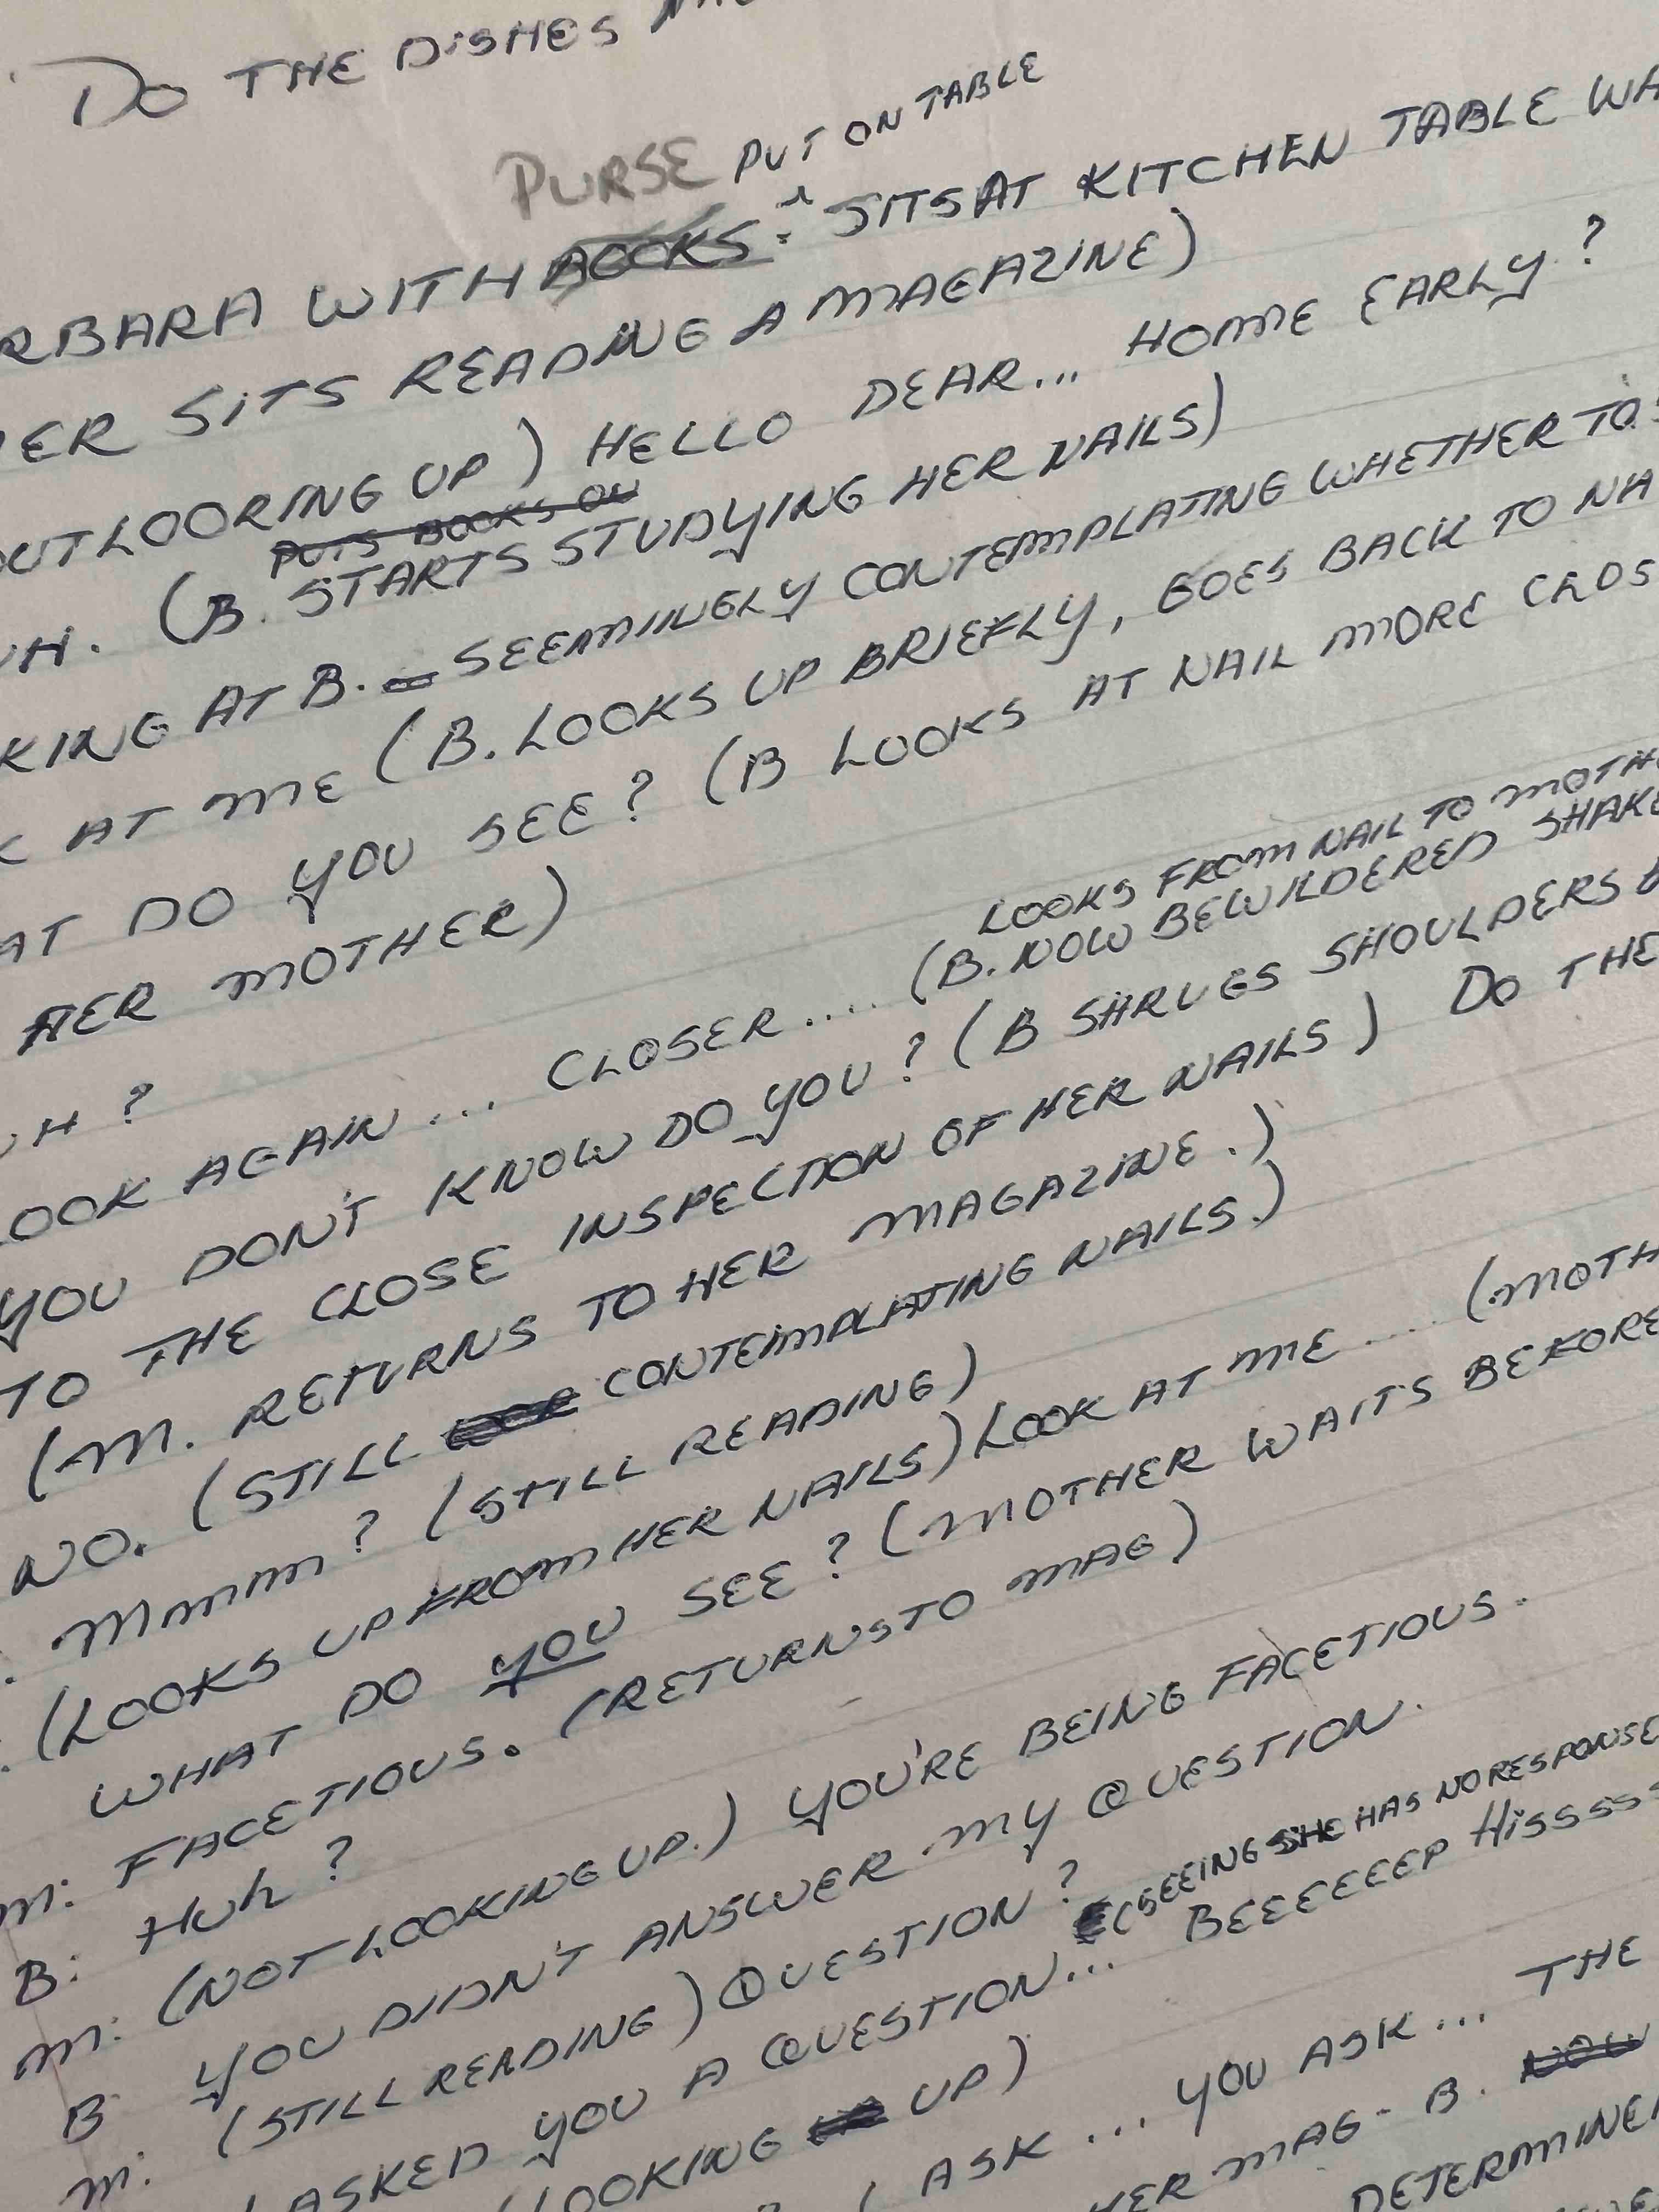 DO THE DISHES
PURSE PUT ON TABLE
RBARA WITH BOOKS. SITS AT KITCHEN TABLE WA
ER SITS READING A MAGAZINE)
OUT LOOKING UP) HELLO DEAR... HOME EARLY?
PUTS BOOKS ON
UH. (B. STARTS STUDYING HER NAILS)
KING AT B. SEEMINGLY CONTEMPLATING WHETHER TO
K AT ME (B. LOOKS UP BRIEFLY, GOES BACK TO NA
AT DO YOU SEE? (B LOOKS AT NAIL MORE CLOS
HER MOTHER)
UH?
LOOKS FROM NAIL TO MOTH
OOK AGAIN... CLOSER.... (B. NOW BEWILDERED SHAKE
YOU DON'T KNOW DO YOU? (B SHRUGS SHOULDERS
TO THE CLOSE INSPECTION OF HER NAILS) DO THE
(M. RETURNS TO HER MAGAZINE.)
NO. (STILL CONTEMPLATING NAILS.)
. Mmmm? (STILL READING)
. (LOOKS UP FROM HER NAILS) LOOK AT ME ..... (MOTH
WHAT DO YOU SEE? (MOTHER WAITS BEFORE
M: FACETIOUS. (RETURNS TO MAG)
B: HUh?
M: (NOT LOOKING UP.) YOU'RE BEING FACETIOUS.
B YOU DIDN'T ANSWER MY QUESTION.
M: (STILL READING) QUESTION?
(SEEING SHE HAS NO RESPONSE
ASKED YOU A QUESTION... BEEEEEEP HISSSSS
LOOKING UP)
I ASK... YOU ASK... THE
HER MAG- B. NOW
DETERMINE